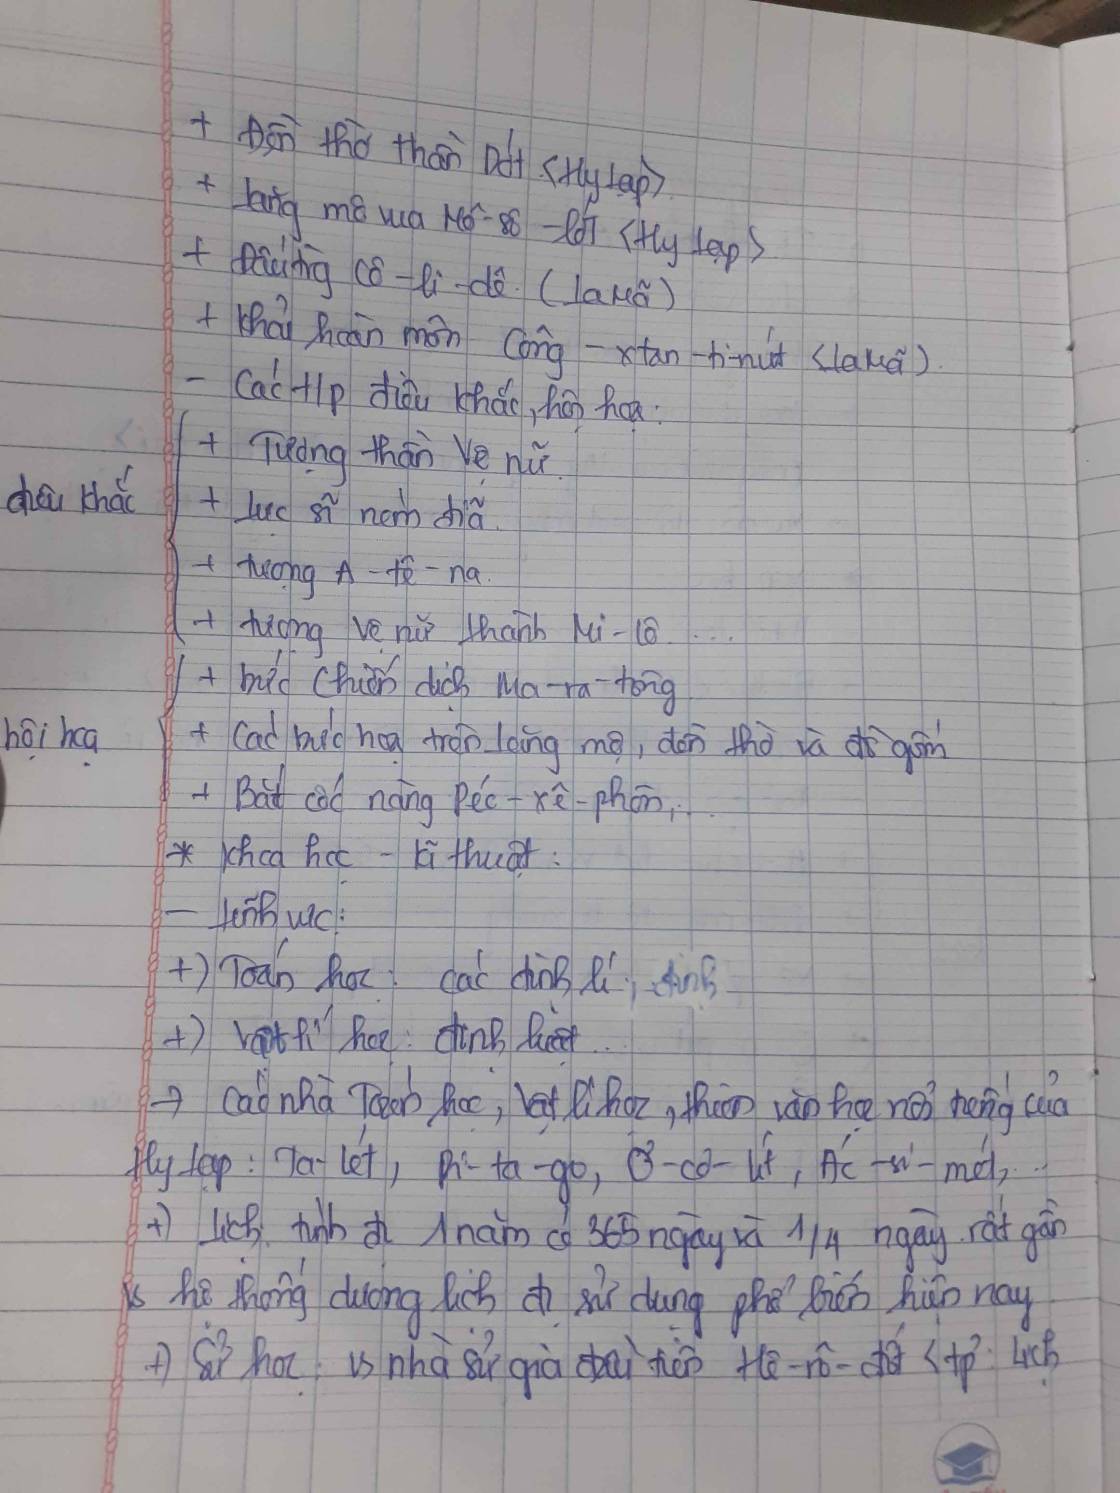 + Đền thờ thần Dớt <Hy Lạp>
+ Lăng mộ vua Mô-sô-lốt <Hy Lạp>
+ Đấu trường Cô-li-dê (La Mã)
+ Khải hoàn môn Công-xtan-ti-nút <La Mã).
- Các t/p điêu khắc, hội họa:
điêu khắc
+ Tượng thần Vệ nữ.
+ Lực sĩ ném đĩa.
+ tượng A-tê-na.
+ tượng vệ nữ thành Mi-lô....
hội họa
+ bức Chiến dịch Ma-ra-tông
+ Các bức họa trên lăng mộ, đền thờ và đồ gốm
+ Bắt cóc nàng Péc-xê-phôn,...
* Khoa học - kĩ thuật:
- Lĩnh vực:
+) Toán học: các định lí, định
+) Vật lí học: định luật...
→ Các nhà Toán học, Vật lí học, thiên văn học nổi tiếng của
Hy Lạp: Ta-lét, Pi-ta-go, Ơ-cơ-lít, Ác-si-mét,...
+) Lịch: tính đc 1 năm có 365 ngày và 1/4 ngày rất gần
vs hệ thống dương lịch đc sử dụng phổ biến hiện nay
+) Sử học: vs nhà sử gia đầu tiên Hê-rô-đốt <tp: Lịch